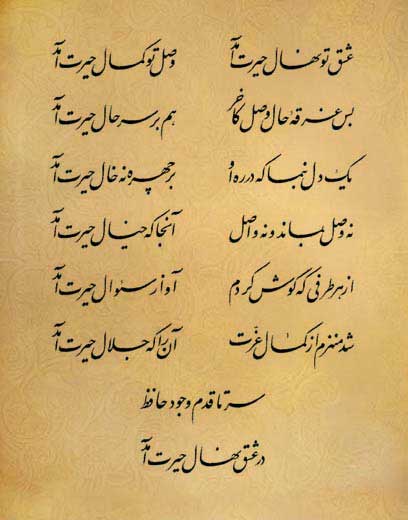 عشق تو نهال حیرت آمد وصل تو کمال حیرت آمد
بس غرقه حال وصل کآخر هم بر سر حال حیرت آمد
یک دل بنما که در ره او بر چهره نه خال حیرت آمد
نه وصل بماند و نه واصل آنجا که خیال حیرت آمد
از هر طرفی که گوش کردم آواز سئوال حیرت آمد
شد منهزم از کمال عزت آن را که جلال حیرت آمد
سر تا قدم وجود حافظ
در عشق نهال حیرت آمد